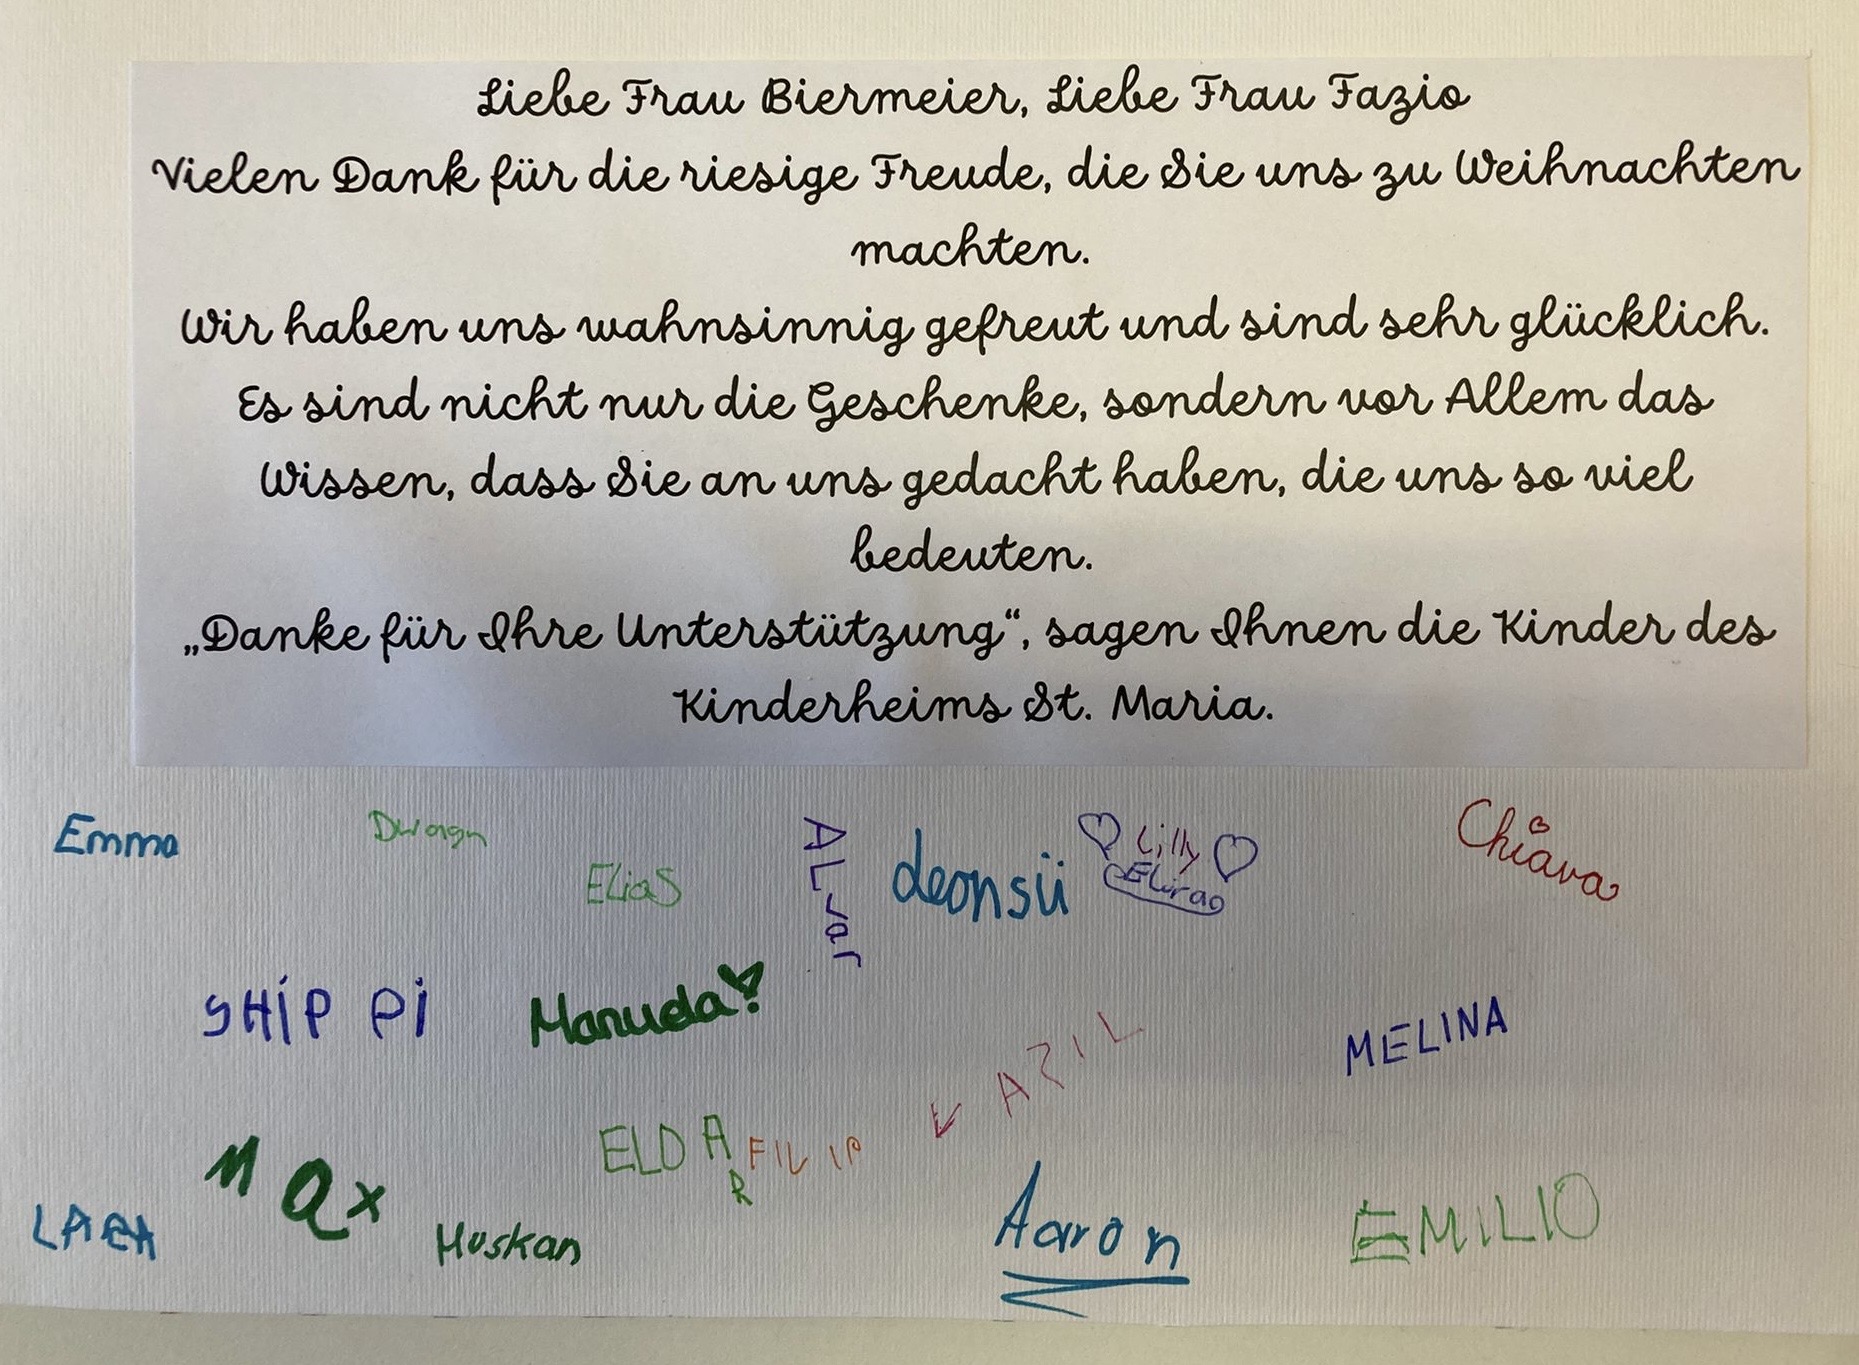 Liebe Frau Biermeier, Liebe Frau Fazio
Vielen Dank für die riesige Freude, die Sie uns zu Weihnachten
machten.
Wir haben uns wahnsinnig gefreut und sind sehr glücklich.
Es sind nicht nur die Geschenke, sondern vor Allem das
Wissen, dass Sie an uns gedacht haben, die uns so viel
bedeuten.
„Danke für Ihre Unterstützung“, sagen Ihnen die Kinder des
Kinderheims St. Maria.
Emma
Elias
ALvar
Leonsii
Lilly
Chiara
SHIP PI
Manuela
MELINA
MAx
ELDAR
FILIP
LARA
Muskan
Aaron
EMILIO